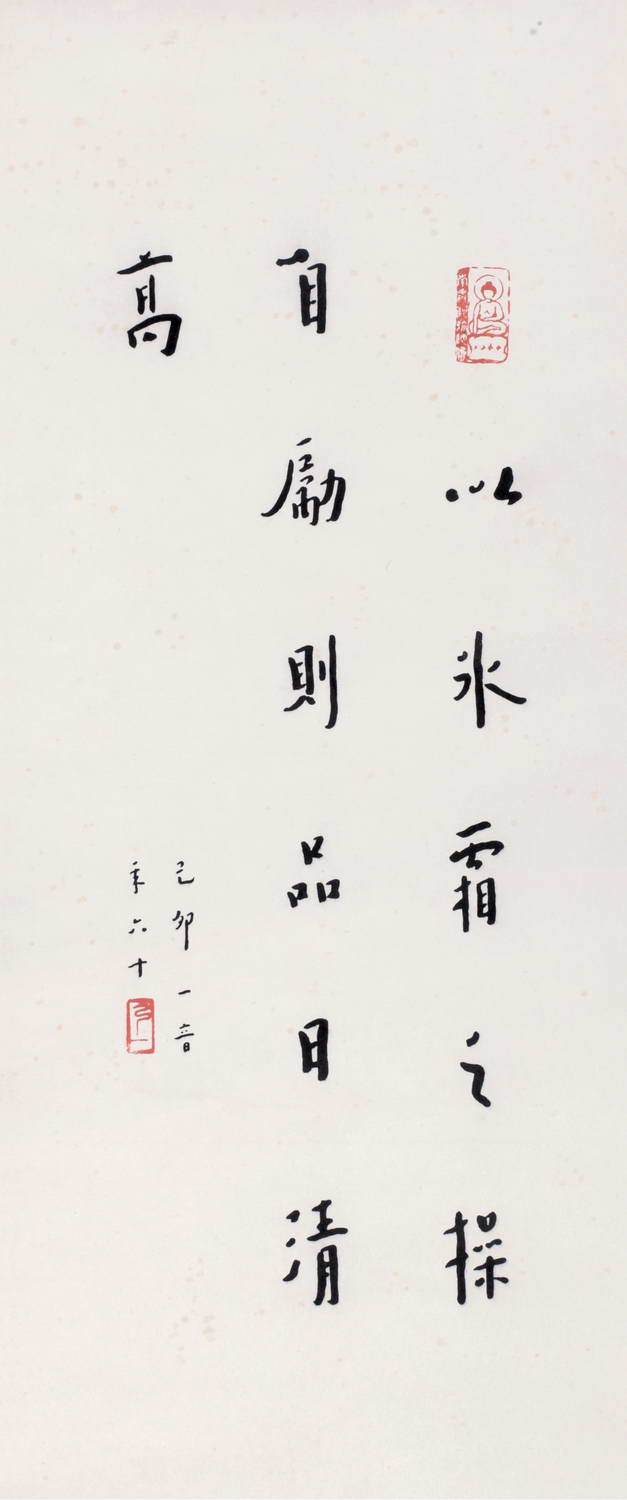 以氷霜之操
自勵則品日清
高
己卯一音
年六十